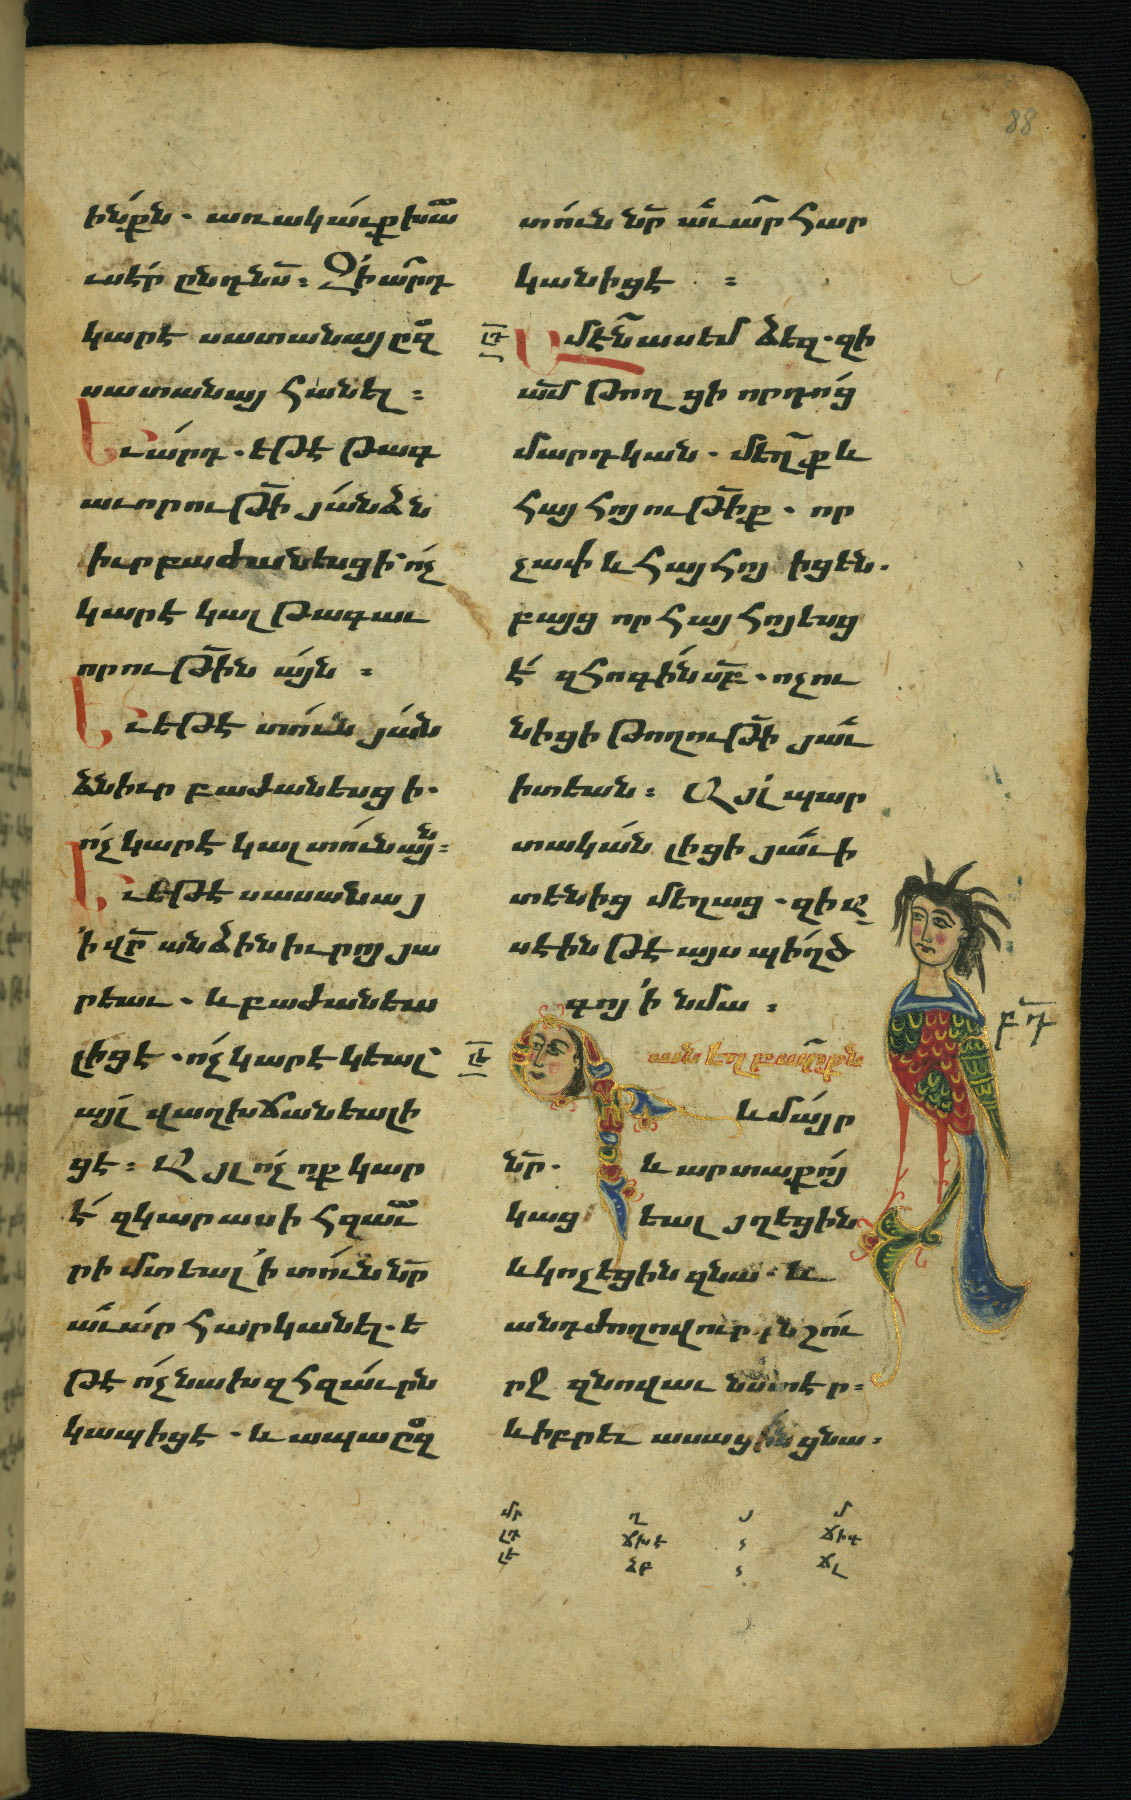 88
ինքն. առակաւք խօ̅
սէր ընդ նս̅։ Զիա̅րդ
կարէ սատանայ ըզ
սատանայ հանել։
Եւ ա՛րդ. եթէ թագ
աւորութի̅ յանձն
իւր բաժանեսցի՝ ո՛չ
կարէ կալ թագաւ
որութի̅ն այն։
Եւ եթէ տուն յան
ձնիւր բաժանեսցի.
ո՛չ կարէ կալ տունն այն։
Եւ եթէ սատանայ
ի վր̅ անձին իւրոյ յա
րեաւ. և բաժանեա՛
լիցէ. ո՛չ կարէ կեալ՝
այլ վաղխճանեալ ի
ցէ։ Այլ ո՛չ ոք կար
է՛ զկարասի հզաւ
րի մտեալ ի տունն նր̅
աւա՛ր հարկանել. ե
թէ ո՛չ նախ զհզաւրն
կապիցէ. և ապա ըզ
տունն նր̅ աւա̅ր հար
կանիցէ։
լդ
Ամէն ասեմ ձեզ. զի
ամ̅ թողցի որդո՛ց
մարդկան. մեղք և
հայհոյութի̅ք. որ
չափ և հայհոյիցեն.
բայց որ հայհոյեսց
է՛ զհոգին սբ̅. ոչ ու
նիցի թողութի̅ յաւ
իտեան։ Այլ պար
տական լիցի յաւի
տենից մեղաց. զի ա
սէին թէ այս պիղծ
գոյ ի նմա։
լե
բդ
ան եղբարքն
և մա՛յր
նր̅. և արտաքո՛յ
կացեալ յղեցին
և կոչեցին զնա. և
անդ ժողովուրդն շու
րջ զնովաւ նստէր։
և իբրեւ ասացին ցնա։
մր ղ յ մ
լդ ճխէ ՛ ճիգ
լե ձբ ՛ ճլ